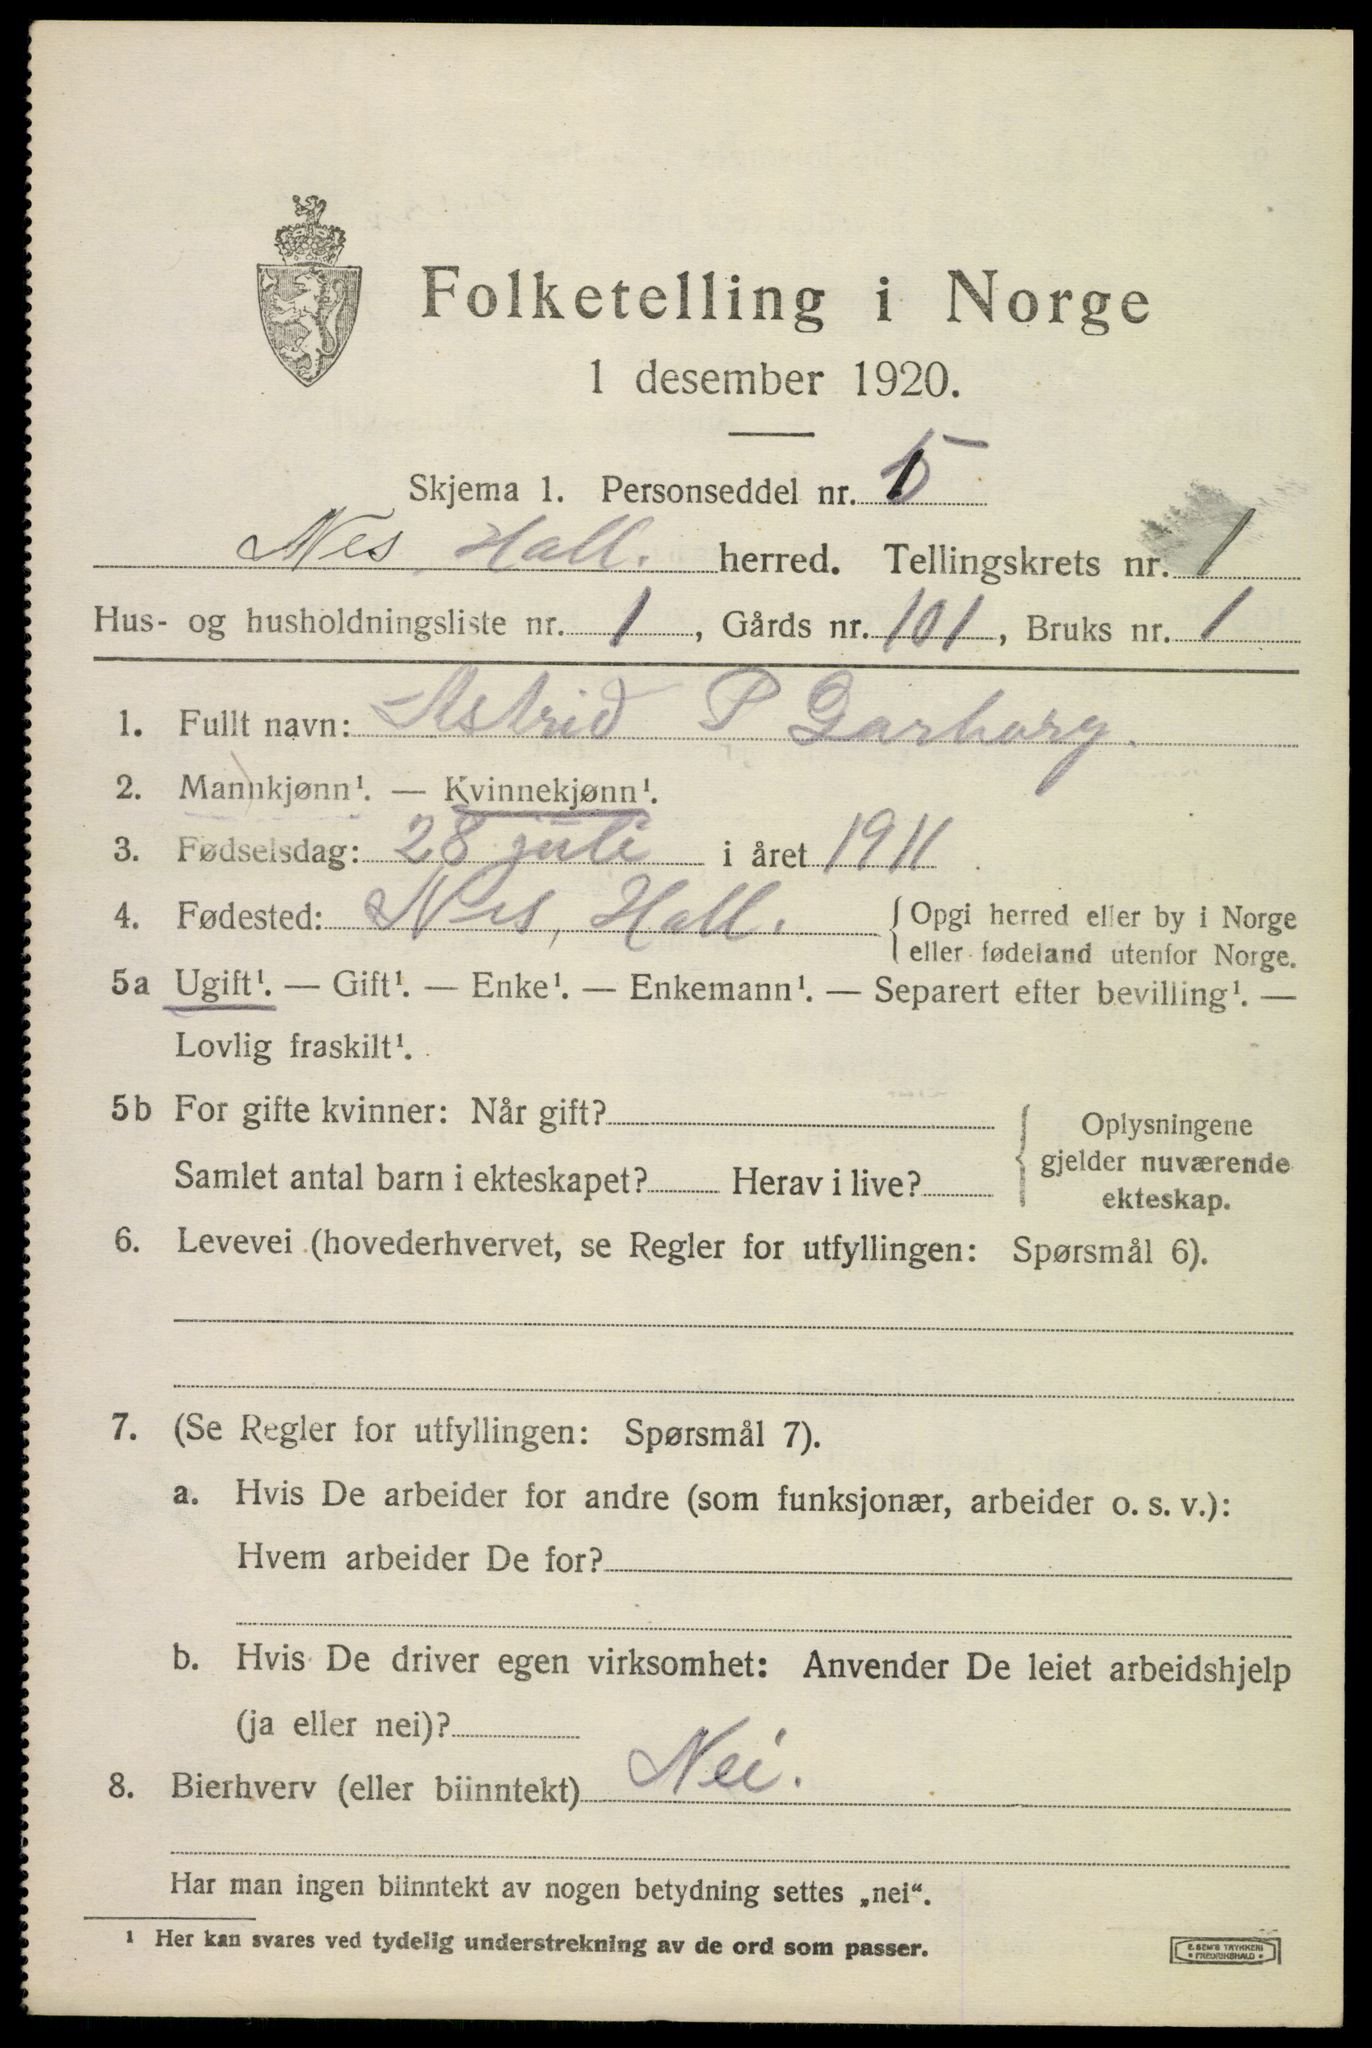 Folketelling i Norge
1 desember 1920.
Skjema 1. Personseddel nr. 5
Nes, Hall. herred. Tellingskrets nr. 1
Hus- og husholdningsliste nr. 1, Gårds nr. 101, Bruks nr. 1
1. Fullt navn: Astrid P Garborg.
2. Mannkjønn¹. — Kvinnekjønn¹.
3. Fødselsdag: 28 juli i året 1911
4. Fødested: Nes, Hall. { Opgi herred eller by i Norge
eller fødeland utenfor Norge.
5a Ugift¹. — Gift¹. — Enke¹. — Enkemann¹. — Separert efter bevilling¹. —
Lovlig fraskilt¹.
5b For gifte kvinner: Når gift?
Samlet antal barn i ekteskapet? Herav i live?
{ Oplysningene
gjelder nuværende
ekteskap.
6. Levevei (hovederhvervet, se Regler for utfyllingen: Spørsmål 6).
7. (Se Regler for utfyllingen: Spørsmål 7).
a. Hvis De arbeider for andre (som funksjonær, arbeider o. s. v.):
Hvem arbeider De for?
b. Hvis De driver egen virksomhet: Anvender De leiet arbeidshjelp
(ja eller nei)?
8. Bierhverv (eller biinntekt) Nei.
Har man ingen biinntekt av nogen betydning settes „nei“.
¹ Her kan svares ved tydelig understrekning av de ord som passer.
E. SEM'S TRYKKERI
• FREDRIKSHALD •